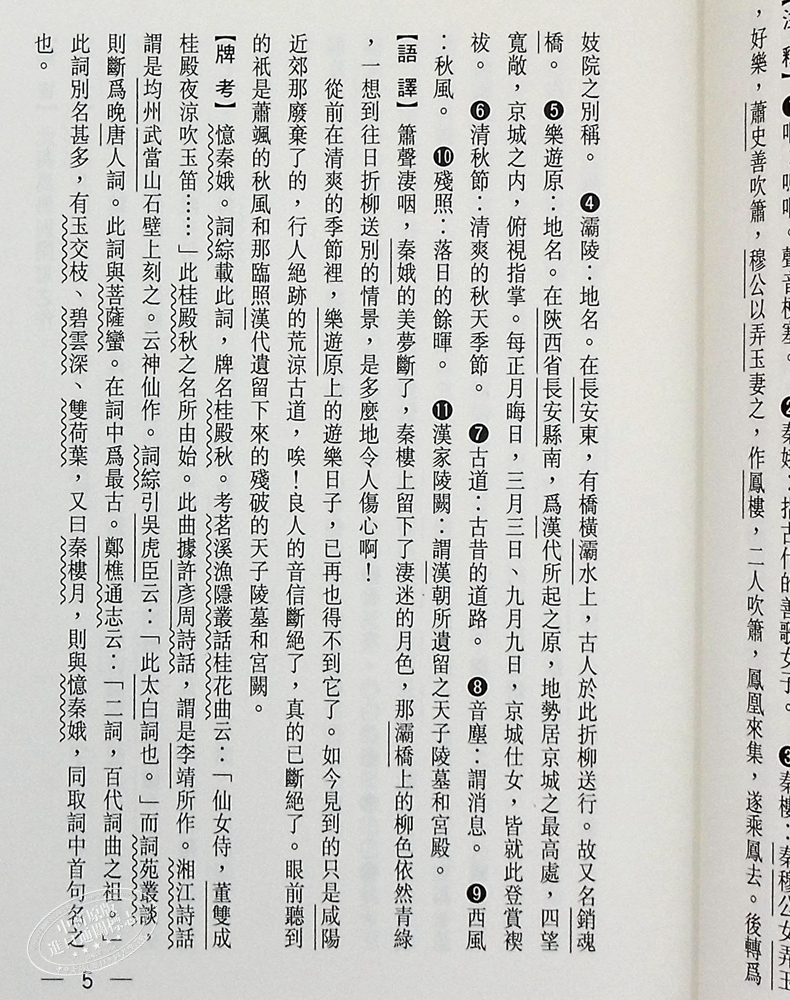 ❷秦娥：指古代的善歌女子。 ❸秦樓：秦穆公女弄玉
，好樂，蕭史善吹簫，穆公以弄玉妻之，作鳳樓，二人吹簫，鳳凰來集，遂乘鳳去。後轉爲
妓院之別稱。 ❹灞陵：地名。在長安東，有橋橫灞水上，古人於此折柳送行。故又名銷魂
橋。 ❺樂遊原：地名。在陝西省長安縣南，爲漢代所起之原，地勢居京城之最高處，四望
寬敞，京城之內，俯視指掌。每正月晦日，三月三日、九月九日，京城仕女，皆就此登賞禊
祓。 ❻清秋節：清爽的秋天季節。 ❼古道：古昔的道路。 ❽音塵：謂消息。 ❾西風
：秋風。 ❿殘照：落日的餘暉。 ⓫漢家陵闕：謂漢朝所遺留之天子陵墓和宮殿。
【語譯】簫聲淒咽，秦娥的美夢斷了，秦樓上留下了淒迷的月色，那灞橋上的柳色依然青綠
，一想到往日折柳送別的情景，是多麼地令人傷心啊！
從前在清爽的季節裡，樂遊原上的遊樂日子，已再也得不到它了。如今見到的只是咸陽
近郊那廢棄了的，行人絕跡的荒涼古道，唉！良人的音信斷絕了，真的已斷絕了。眼前聽到
的祇是蕭颯的秋風和那臨照漢代遺留下來的殘破的天子陵墓和宮闕。
【牌考】憶秦娥。詞綜載此詞，牌名桂殿秋。考苕溪漁隱叢話桂花曲云：「仙女侍，董雙成
桂殿夜涼吹玉笛……」此桂殿秋之名所由始。此曲據許彥周詩話，謂是李靖所作。湘江詩話
謂是均州武當山石壁上刻之。云神仙作。詞綜引吳虎臣云：「此太白詞也。」而詞苑叢談，
則斷爲晚唐人詞。此詞與菩薩蠻。在詞中爲最古。鄭樵通志云：「二詞，百代詞曲之祖。」
此詞別名甚多，有玉交枝、碧雲深、雙荷葉，又曰秦樓月，則與憶秦娥，同取詞中首句名之
也。
— 5 —